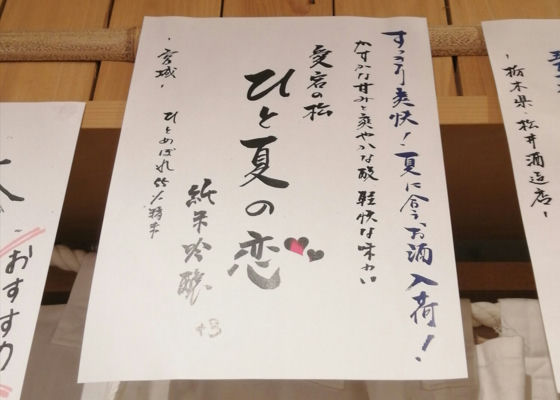 すっきり爽快！夏に合うお酒入荷！
かすかな甘みと爽やかな酸 軽快な味わい
愛宕の松
ひと夏の恋
純米吟醸
+3
-宮城-
ひとめぼれ 55%精米
-栃木県・松井酒造店-
おすすめ